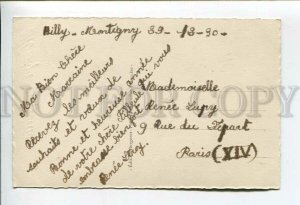 Billy-Montigny 29-12-30-
Ma Bien Chère
Marraine
Recevez les meilleurs
souhaits et voeux de
Bonne et heureuse année
de votre chère filleule qui vous
embrasse bien fort
Renée
Mademoiselle
Renée Lupy
9 Rue du Départ
Paris (XIV)